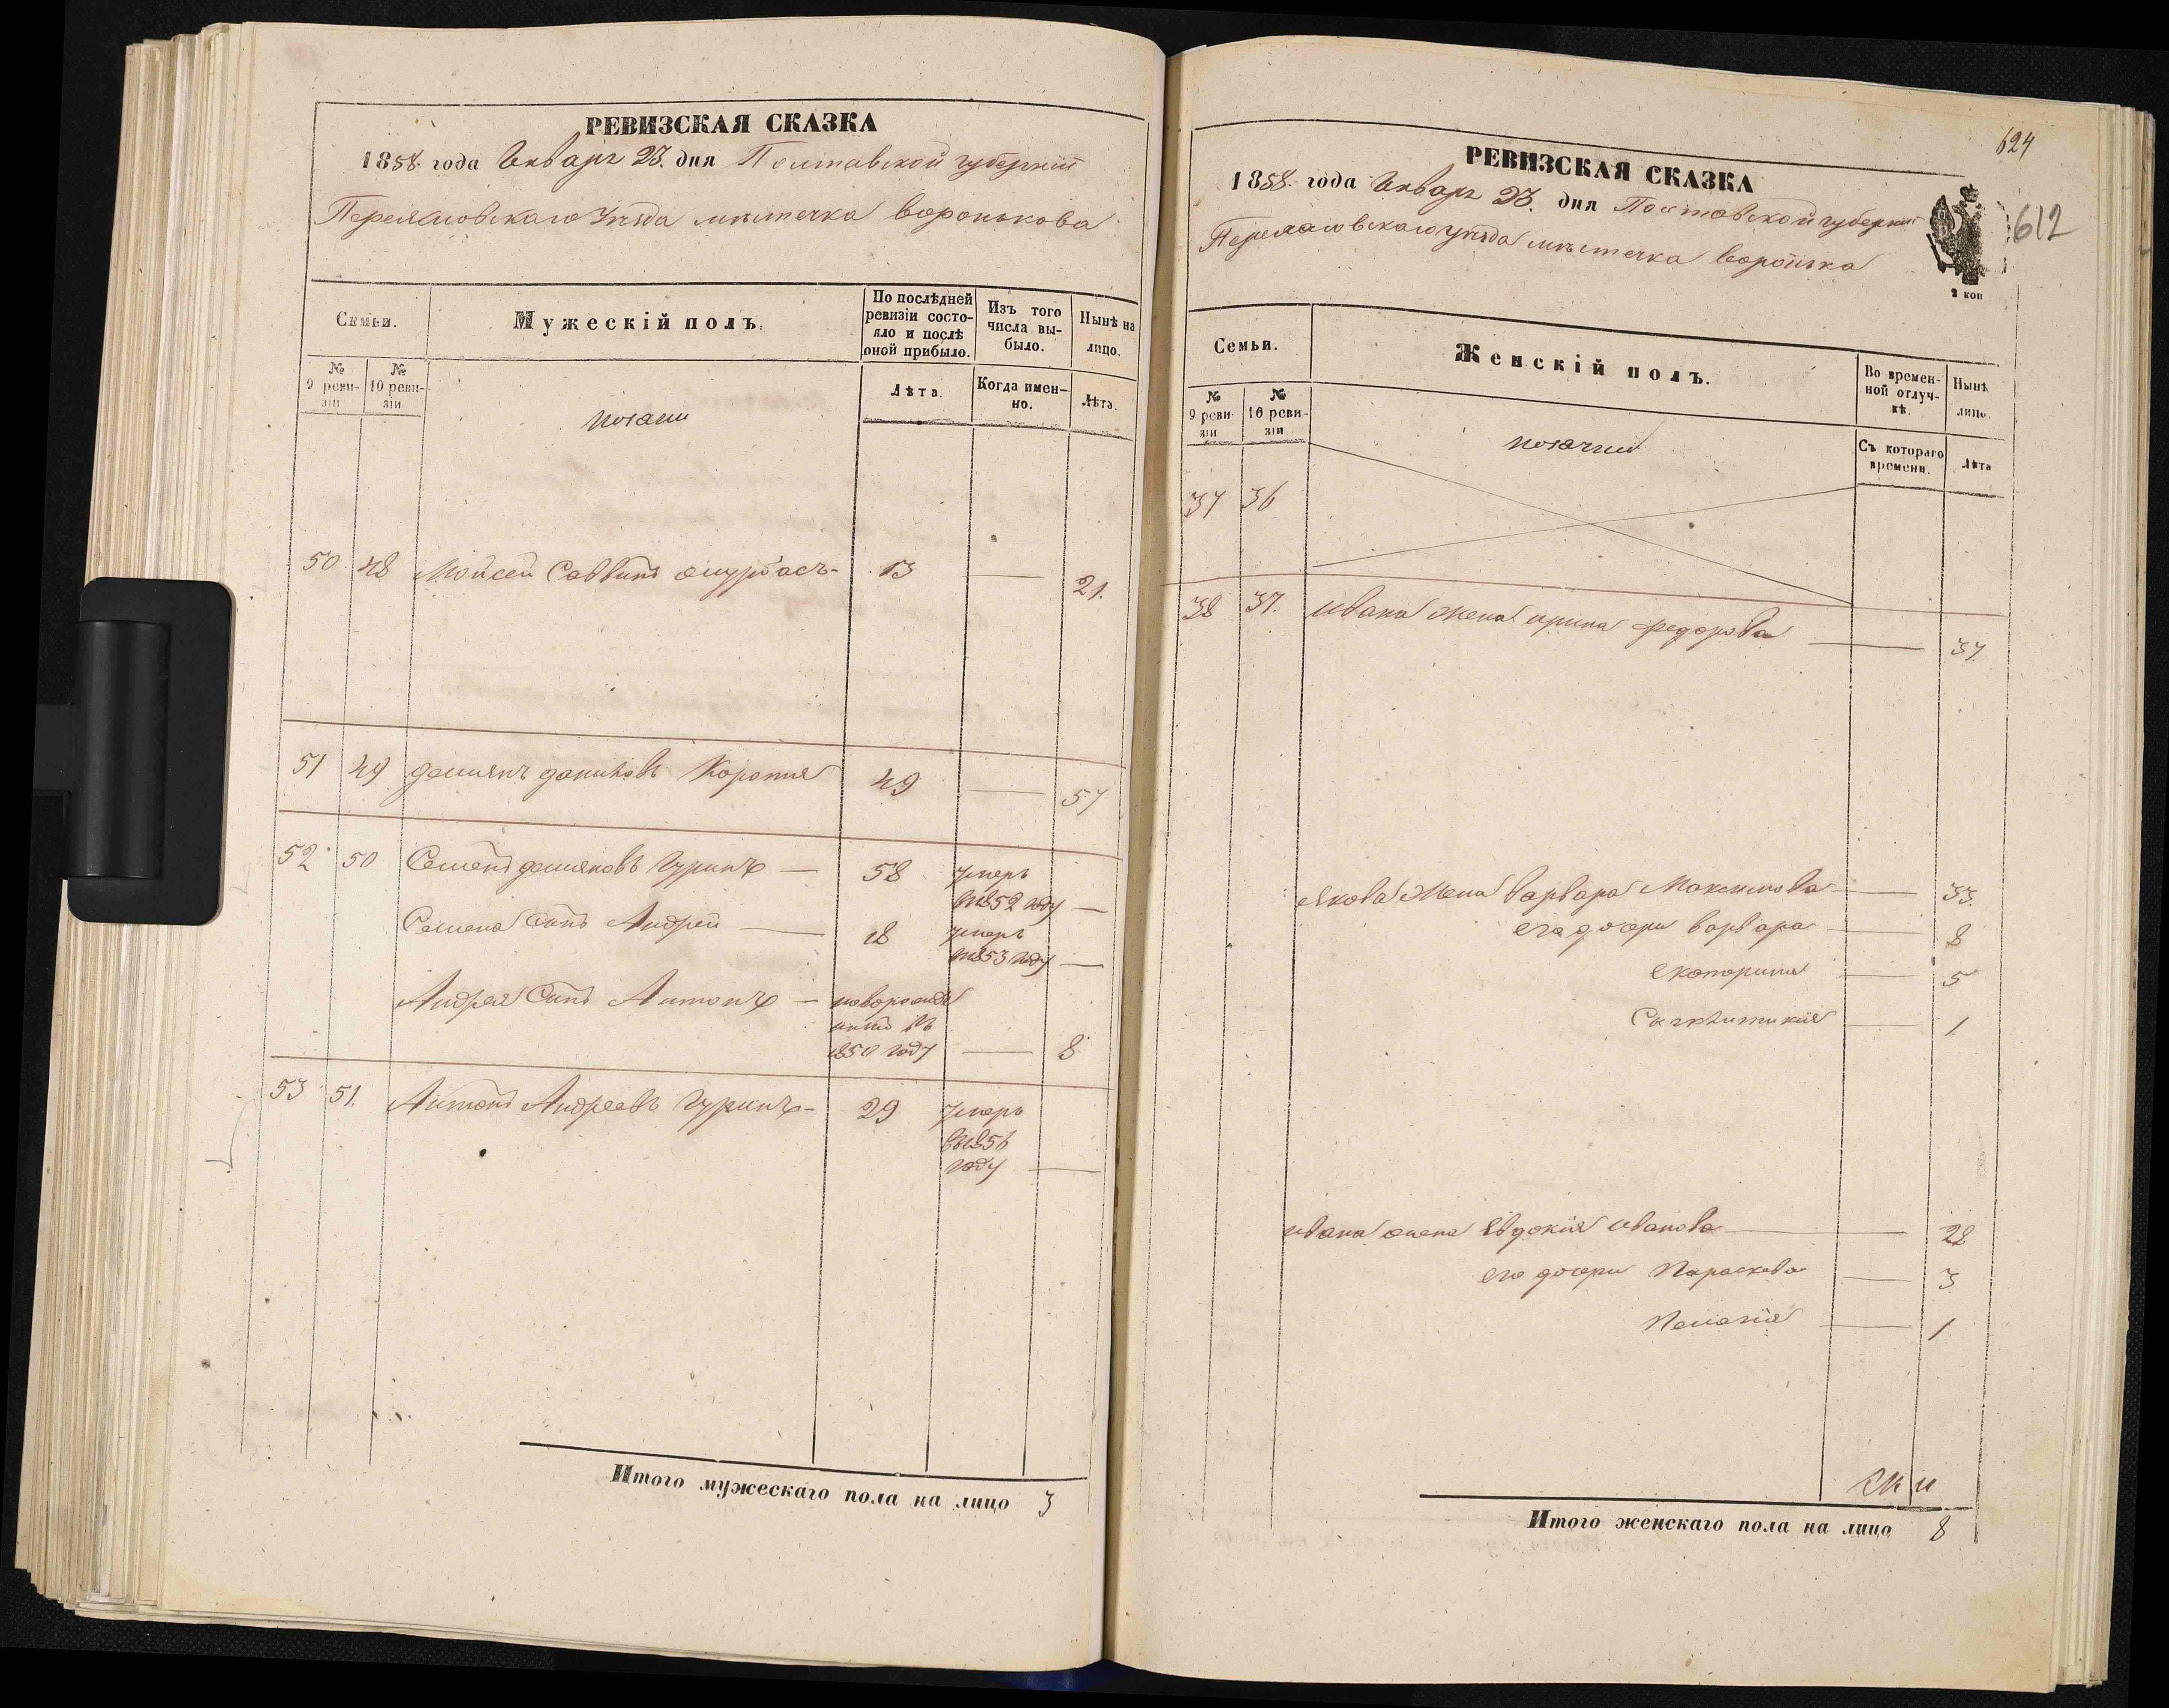 РЕВИЗСКАЯ СКАЗКА
1858 года Января 23. дня Полтавской губернiи
Переяславскаго Уѣзда мѣстечка Воронькова
Семьи.
Мужескiй полъ.
По послѣдней ревизiи состояло и послѣ оной прибыло.
Изъ того числа выбыло.
Нынѣ на лицо.
№ 9 ревизiи
№ 10 ревизiи
Лѣта.
Когда именно.
Лѣта.
50 48 Мойсей Саввинъ 13 — 21.
51 49 Демьянъ Даниловъ 49 — 57
52 50 Семенъ Демьяновъ Гуринъ — 58 умеръ
въ 1852 году —
Семена Сынъ Андрей — 18 умеръ
въ 1853 году —
Андрея Сынъ Антонъ — новорожде
нный въ
1850 году — 8
53 51. Антонъ Андреевъ Гуринъ — 29 умеръ
въ 1856
году —
Итого мужескаго пола на лицо 3
624
612
РЕВИЗСКАЯ СКАЗКА
1858 года Января 23. дня Полтавской губернiи
Переяславскаго уѣзда мѣстечка Воронька
2 коп
Семьи.
Женскiй полъ.
Во временной отлучкѣ.
Нынѣ лицо.
№ 9 ревизiи
№ 10 ревизiи
Съ котораго времени.
Лѣта
37 36
38 37. Ивана Жена Ирина Федорова — 37.
Якова Жена Варвара Максимова — 33.
его дочери Варвара — 8
Екатерина — 5
1
Ивана жена Евдокiя Иванова — 28
его дочери Параскева — 3
Пелагiя — 1
Итого женскаго пола на лицо 8